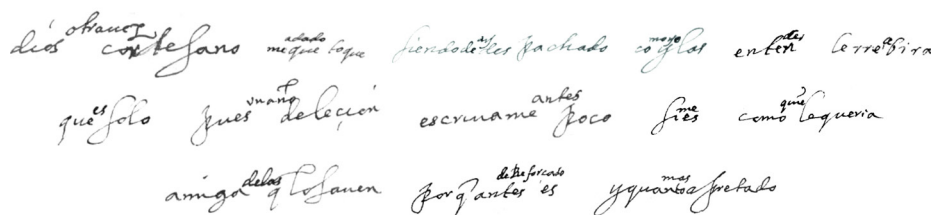 dios otrauez cortesano me adado que toque siendo del despachado como yo las entendes lerrebira
que es solo pues vnano deleçion escriuame antes poco si me es como que lequeria
amiga delas q losauen porq antes de reforcado es y quanto mas apretado